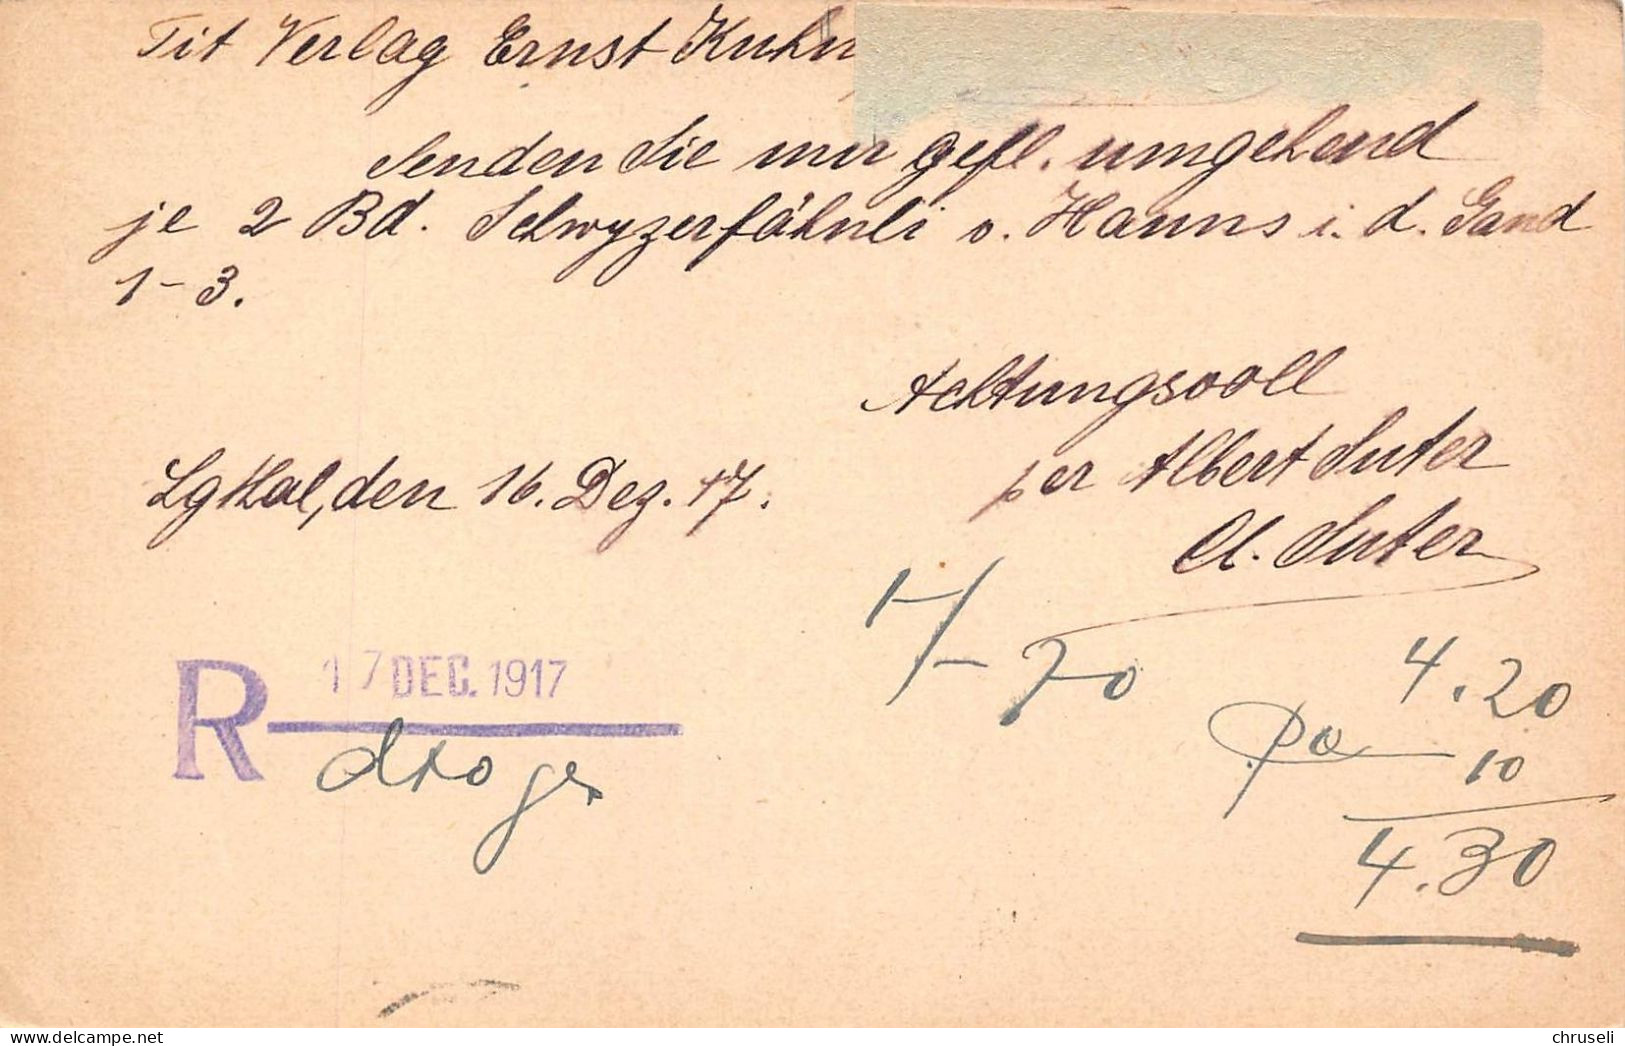 Tit Verlag Ernst Kuhn
Senden Sie mir gefl. umgehend
je 2 Bd. Schwyzerfähnli v. Hanns i. d. Gand
1-3.
Achtungsvoll
per Albert Suter
Lgthal, den 16. Dez. 17.
A. Suter
-70
4.20
10
4.30
R 17 DEC. 1917
www.delcampe.net
chruseli